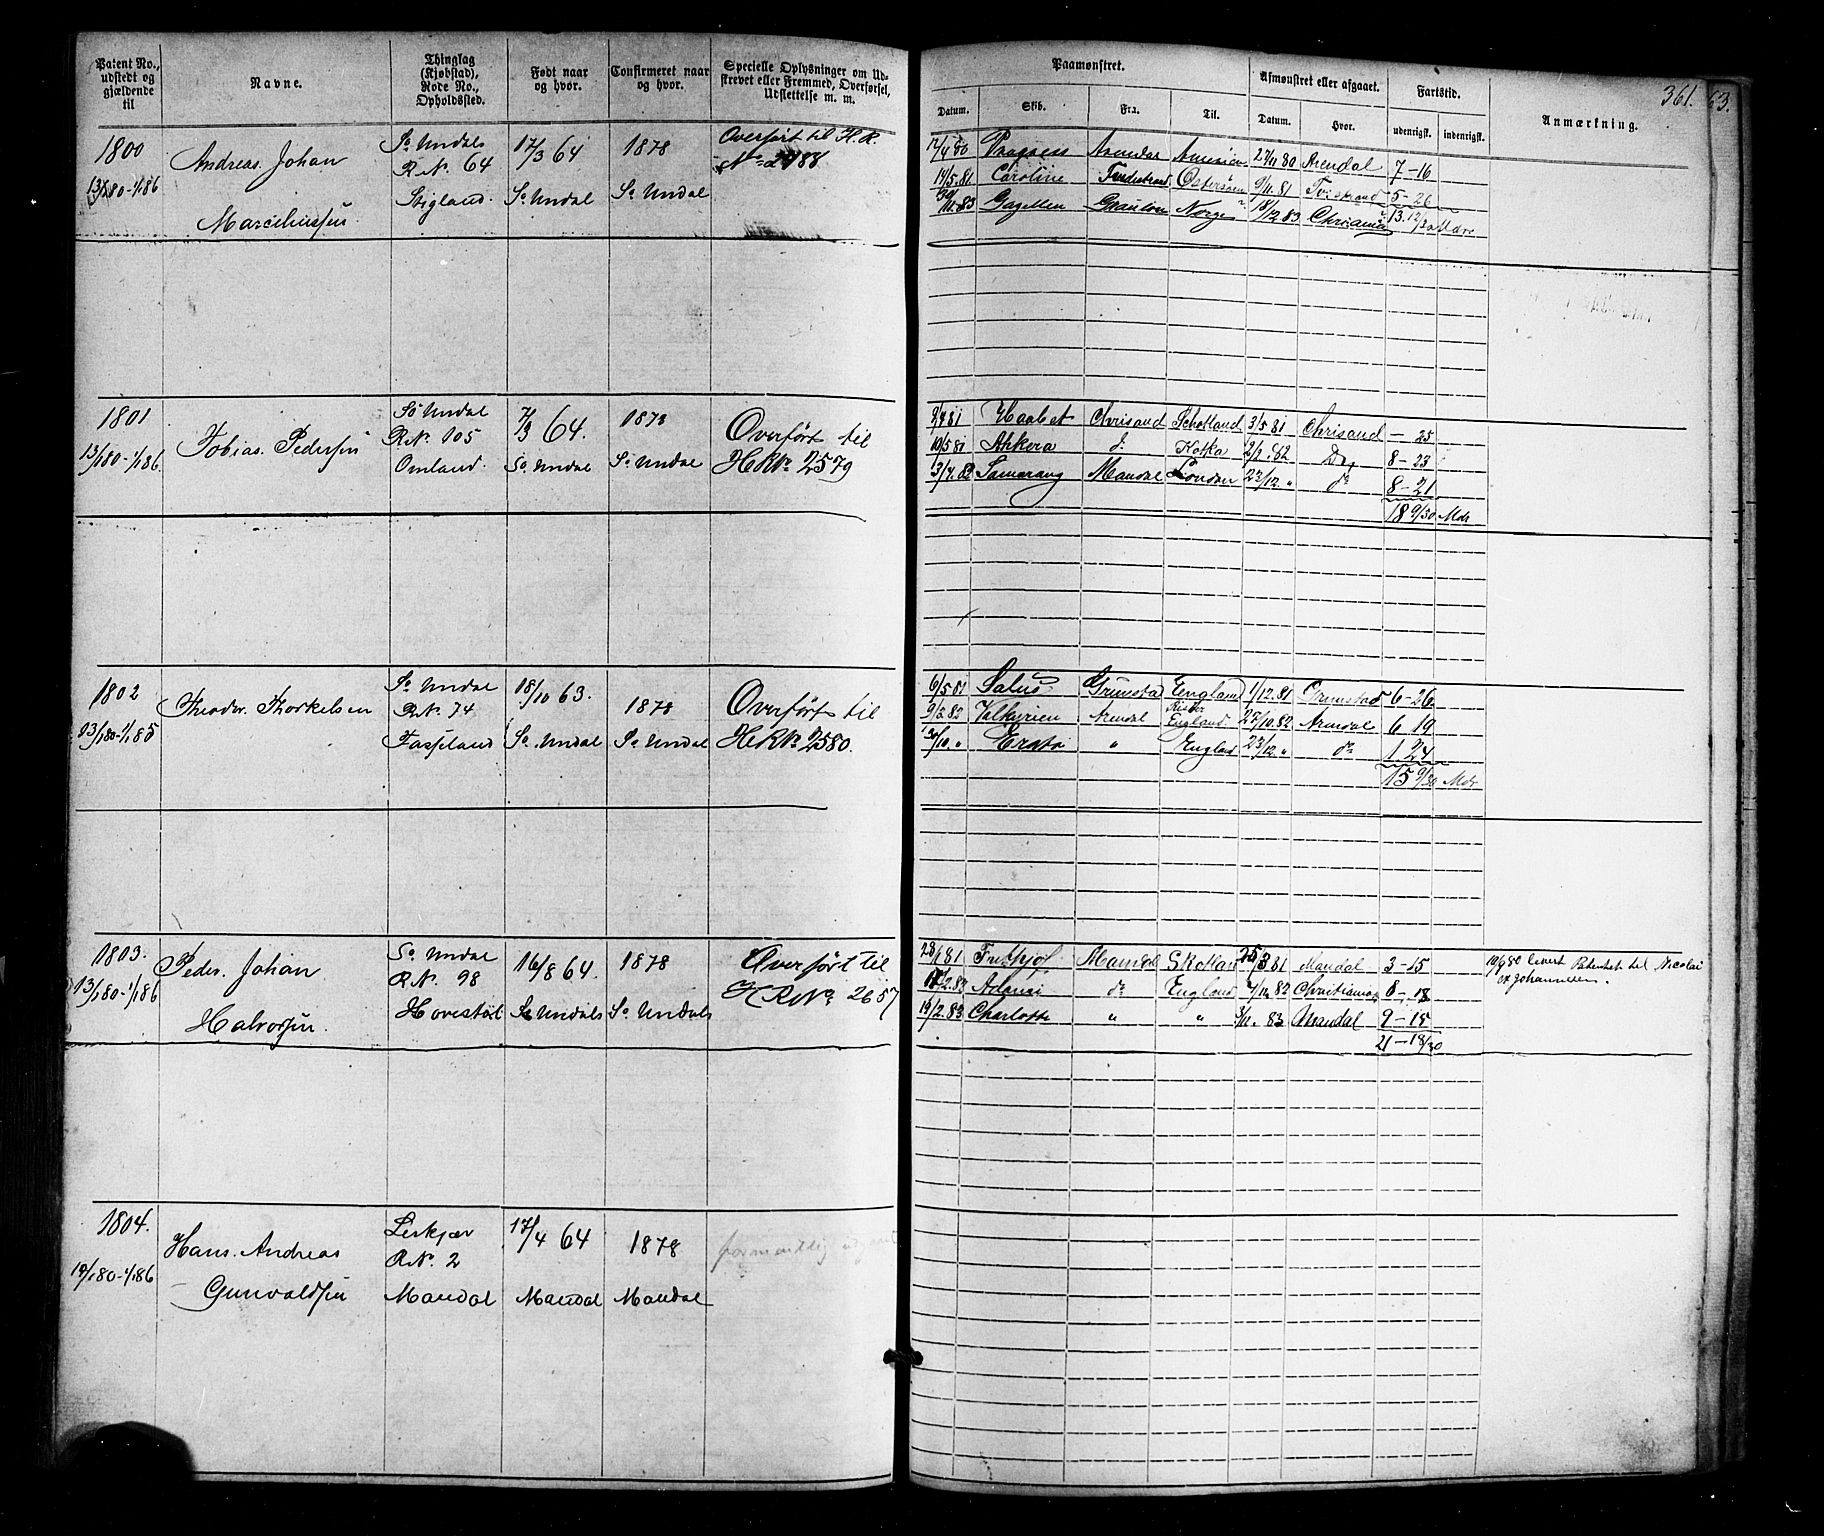 Patent No., udstedt og gjældende til
Navne.
Thinglag (Kjøbstad), Rode No., Opholdssted.
Født naar og hvor.
Confirmeret naar og hvor.
Specielle Oplysninger om Udskrevet eller Fremmed, Overførsel, Udslettelse m. m.
Paamønstret.
Datum.
Skib.
Fra.
Til.
Afmønstret eller afgaaet.
Datum.
Hvor.
Fartstid.
udenrigsk.
indenrigsk.
Anmærkning.
361.
63.
1800
13/1 80-1/1 86
Andreas Johan
Marceliussen
So Undals
R No. 64
Stigland.
17/3 64
So Undal
1878
So Undal
Overført til H. R.
No 2488
17/4 80 Arendal 27/11 80 Arendal 7-16
14/5.81 Caroline Østersøen 9/11.81 5-26
83 Gazellen Norge 18/12 83
1801
13/1 80-1/1 86
Tobias. Pedersen
So Undal
R No. 105
Omland.
7/3 64.
So Undal
1878
So Undal
Overført til
H R No 2579
81 Haabet Chrisand Schotland 3/5 81 Chrisand - 25
10/5 81 Ankera do Kotka 82 Do 8-23
3/4.82 Samarang Mandal London 23/12. " do 8-21
18 9/30 Mdr
1802
13/1 80-1/1 85
Theodor. Thorkelsen
So Undal
R No. 74
Fasseland
18/10 63.
So. Undal
1878
So Undal
Overført til
H R No 2580.
6/5 81 Salus Grimstad England 1/12.81 Grimstad 6-26
9/3.82 Valkyrien Arendal England 27/10.82 Arendal 6 19
30/10. " Erato " England 23/12. " do 1 24
15 9/30 Mdr
1803.
13/1 80-1/1 86
Peder. Johan
Halvorsen.
So Undal
R No. 98
Hovestøl
16/8 64.
So Undals
1878
So Undals
Overført til
H R No 2657
28/1 81 Frithjof Mandal Skotland 81 Mandal 3-15
2.82 Adonai do England 82 8-18
19/2.83 Charlotte " " 83 Mandal 9-15
21-18/30
Patentet til Nicolai
1804.
19/1 80-1/1 86
Hans. Andreas
Gunvaldsen
Leskjær
R No. 2
Mandal
17/4 64
Mandal
1878
Mandal
formentlig